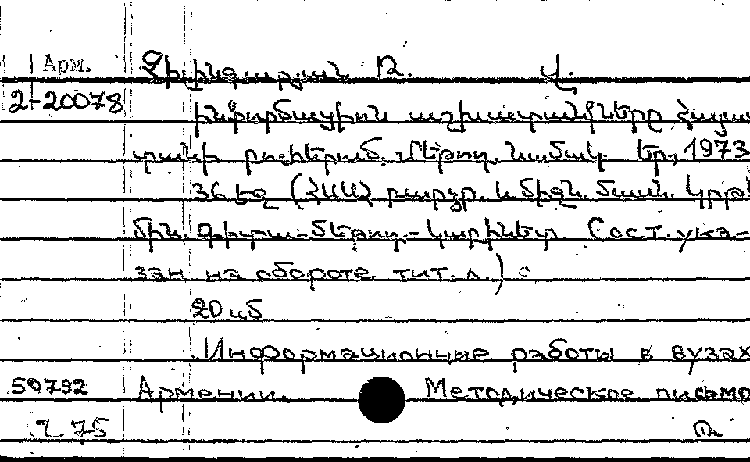 Арм. Չիլինգարյան Ռ. Վ.
2-20078
Ինֆորմացիոն աշխատանքները Հայաս
տանի բուհերում. Մեթոդ. նամակ Եր., 1973
36 էջ (ՀՍՍՀ բարձր. և միջն. մասն. կրթ
մին. գիտա-մեթոդ.-կաբինետ Сост. ука-
зан на обороте тит. л.)
20 սմ
Информационные работы в вузах
50792 Армении. Методическое письмо
75